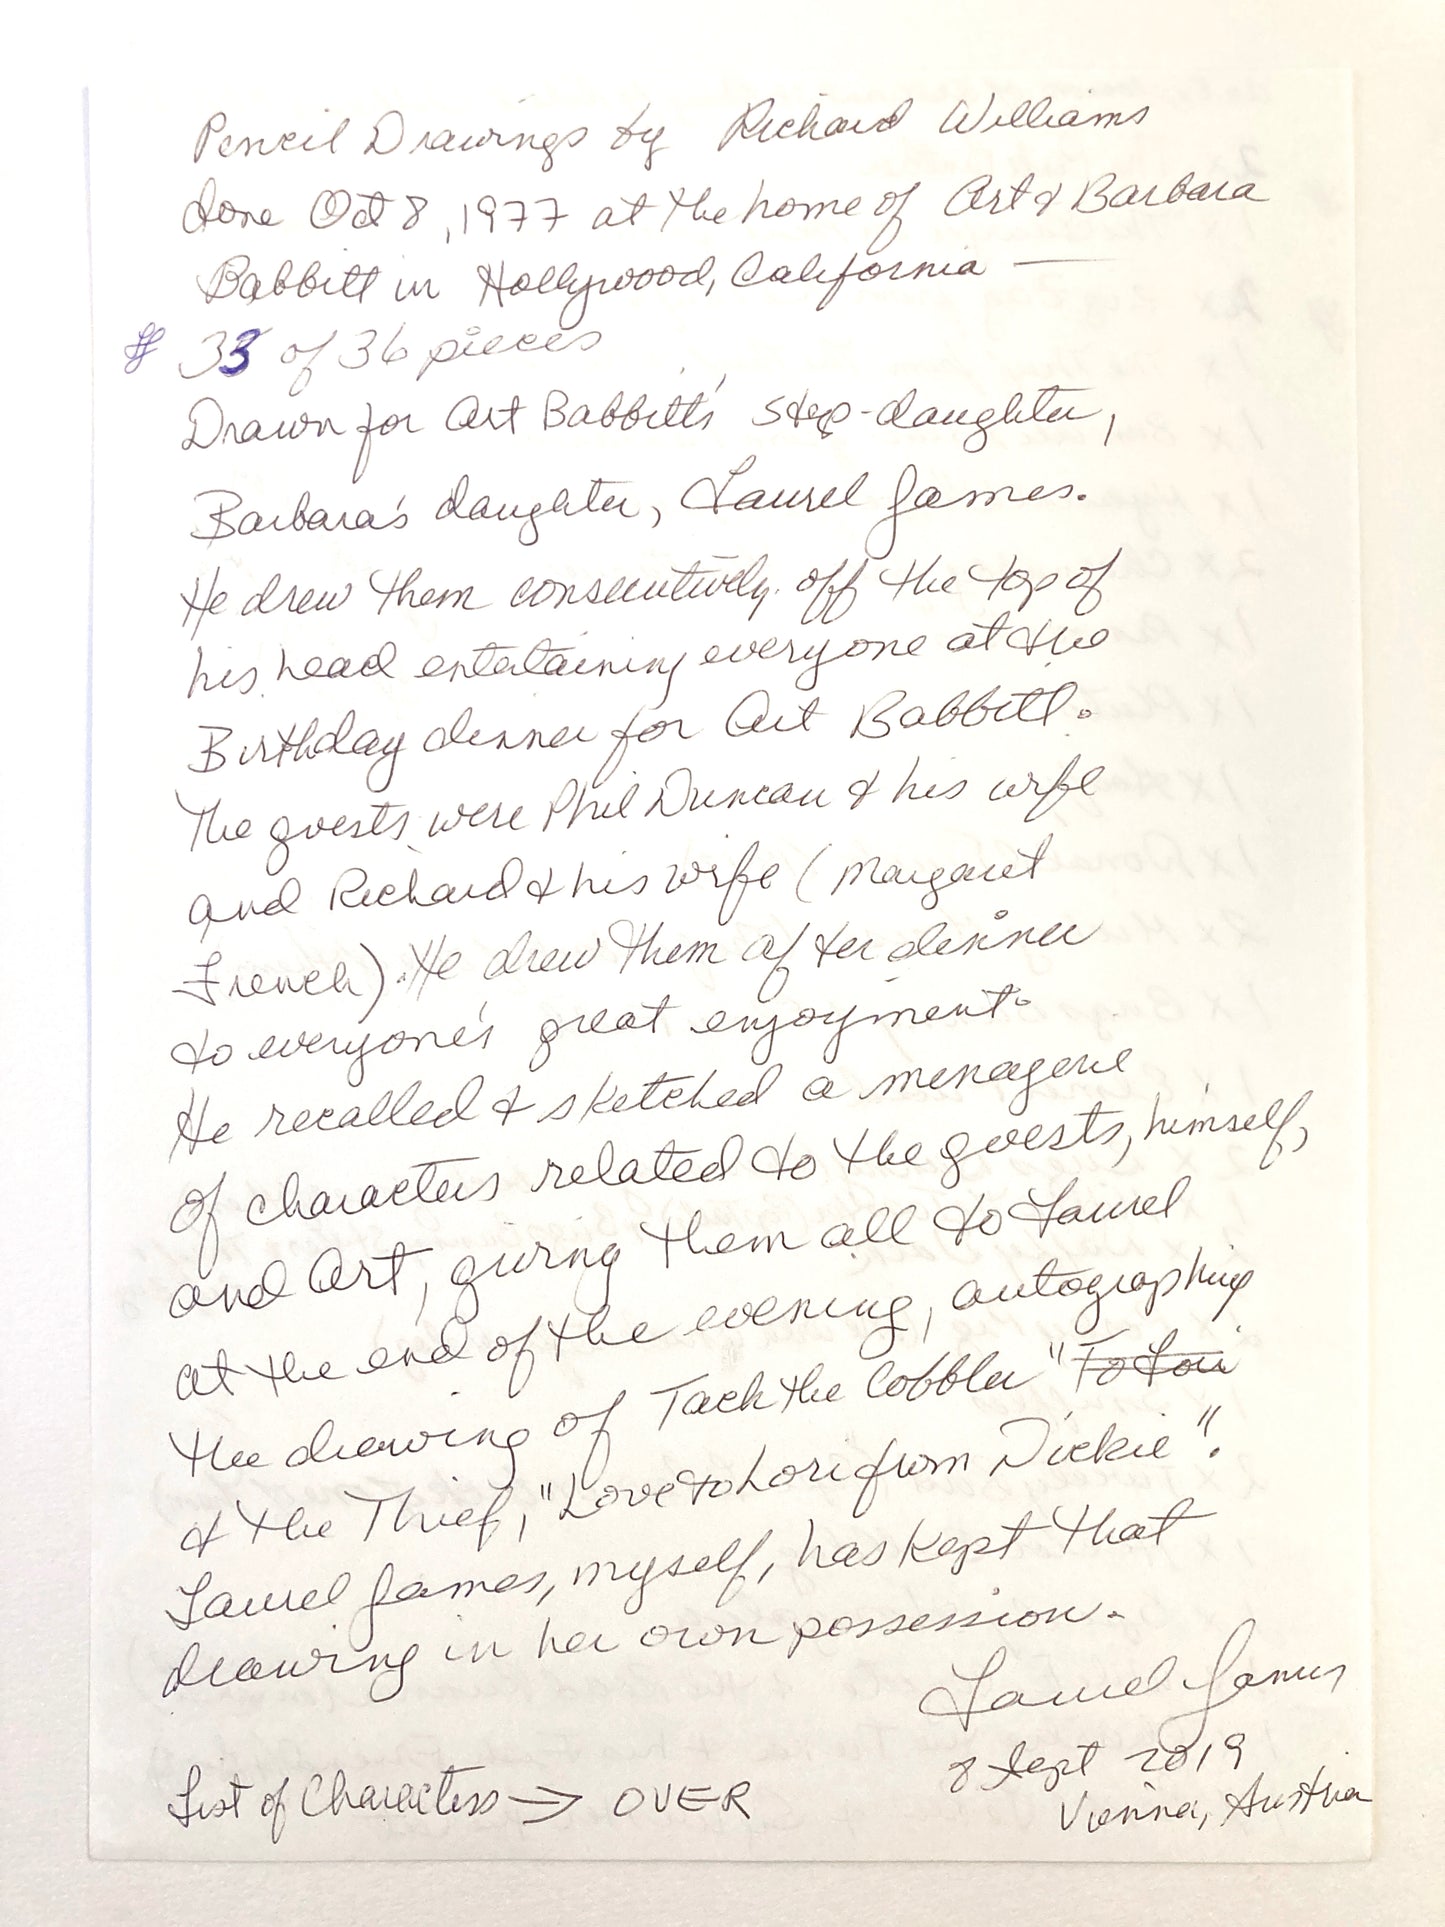 Pencil Drawings by Richard Williams
done Oct 8, 1977 at the home of Art & Barbara
Babbitt in Hollywood, California —
# 33 of 36 pieces
Drawn for Art Babbitt's step-daughter,
Barbara's daughter, Laurel James.
He drew them consecutively off the top of
his head entertaining everyone at the
Birthday dinner for Art Babbitt.
The guests were Phil Duncan & his wife
and Richard & his wife (Margaret
French). He drew them after dinner
to everyone's great enjoyment.
He recalled & sketched a menagerie
of characters related to the guests, himself,
and Art, giving them all to Laurel
at the end of the evening, autographing
the drawing of Tack the Cobbler " To Lori
& the Thief, "Love to Lori from Dickie".
Laurel James, myself, has kept that
drawing in her own possession.
Laurel James
8 Sept 2019
Vienna, Austria
List of Characters → OVER